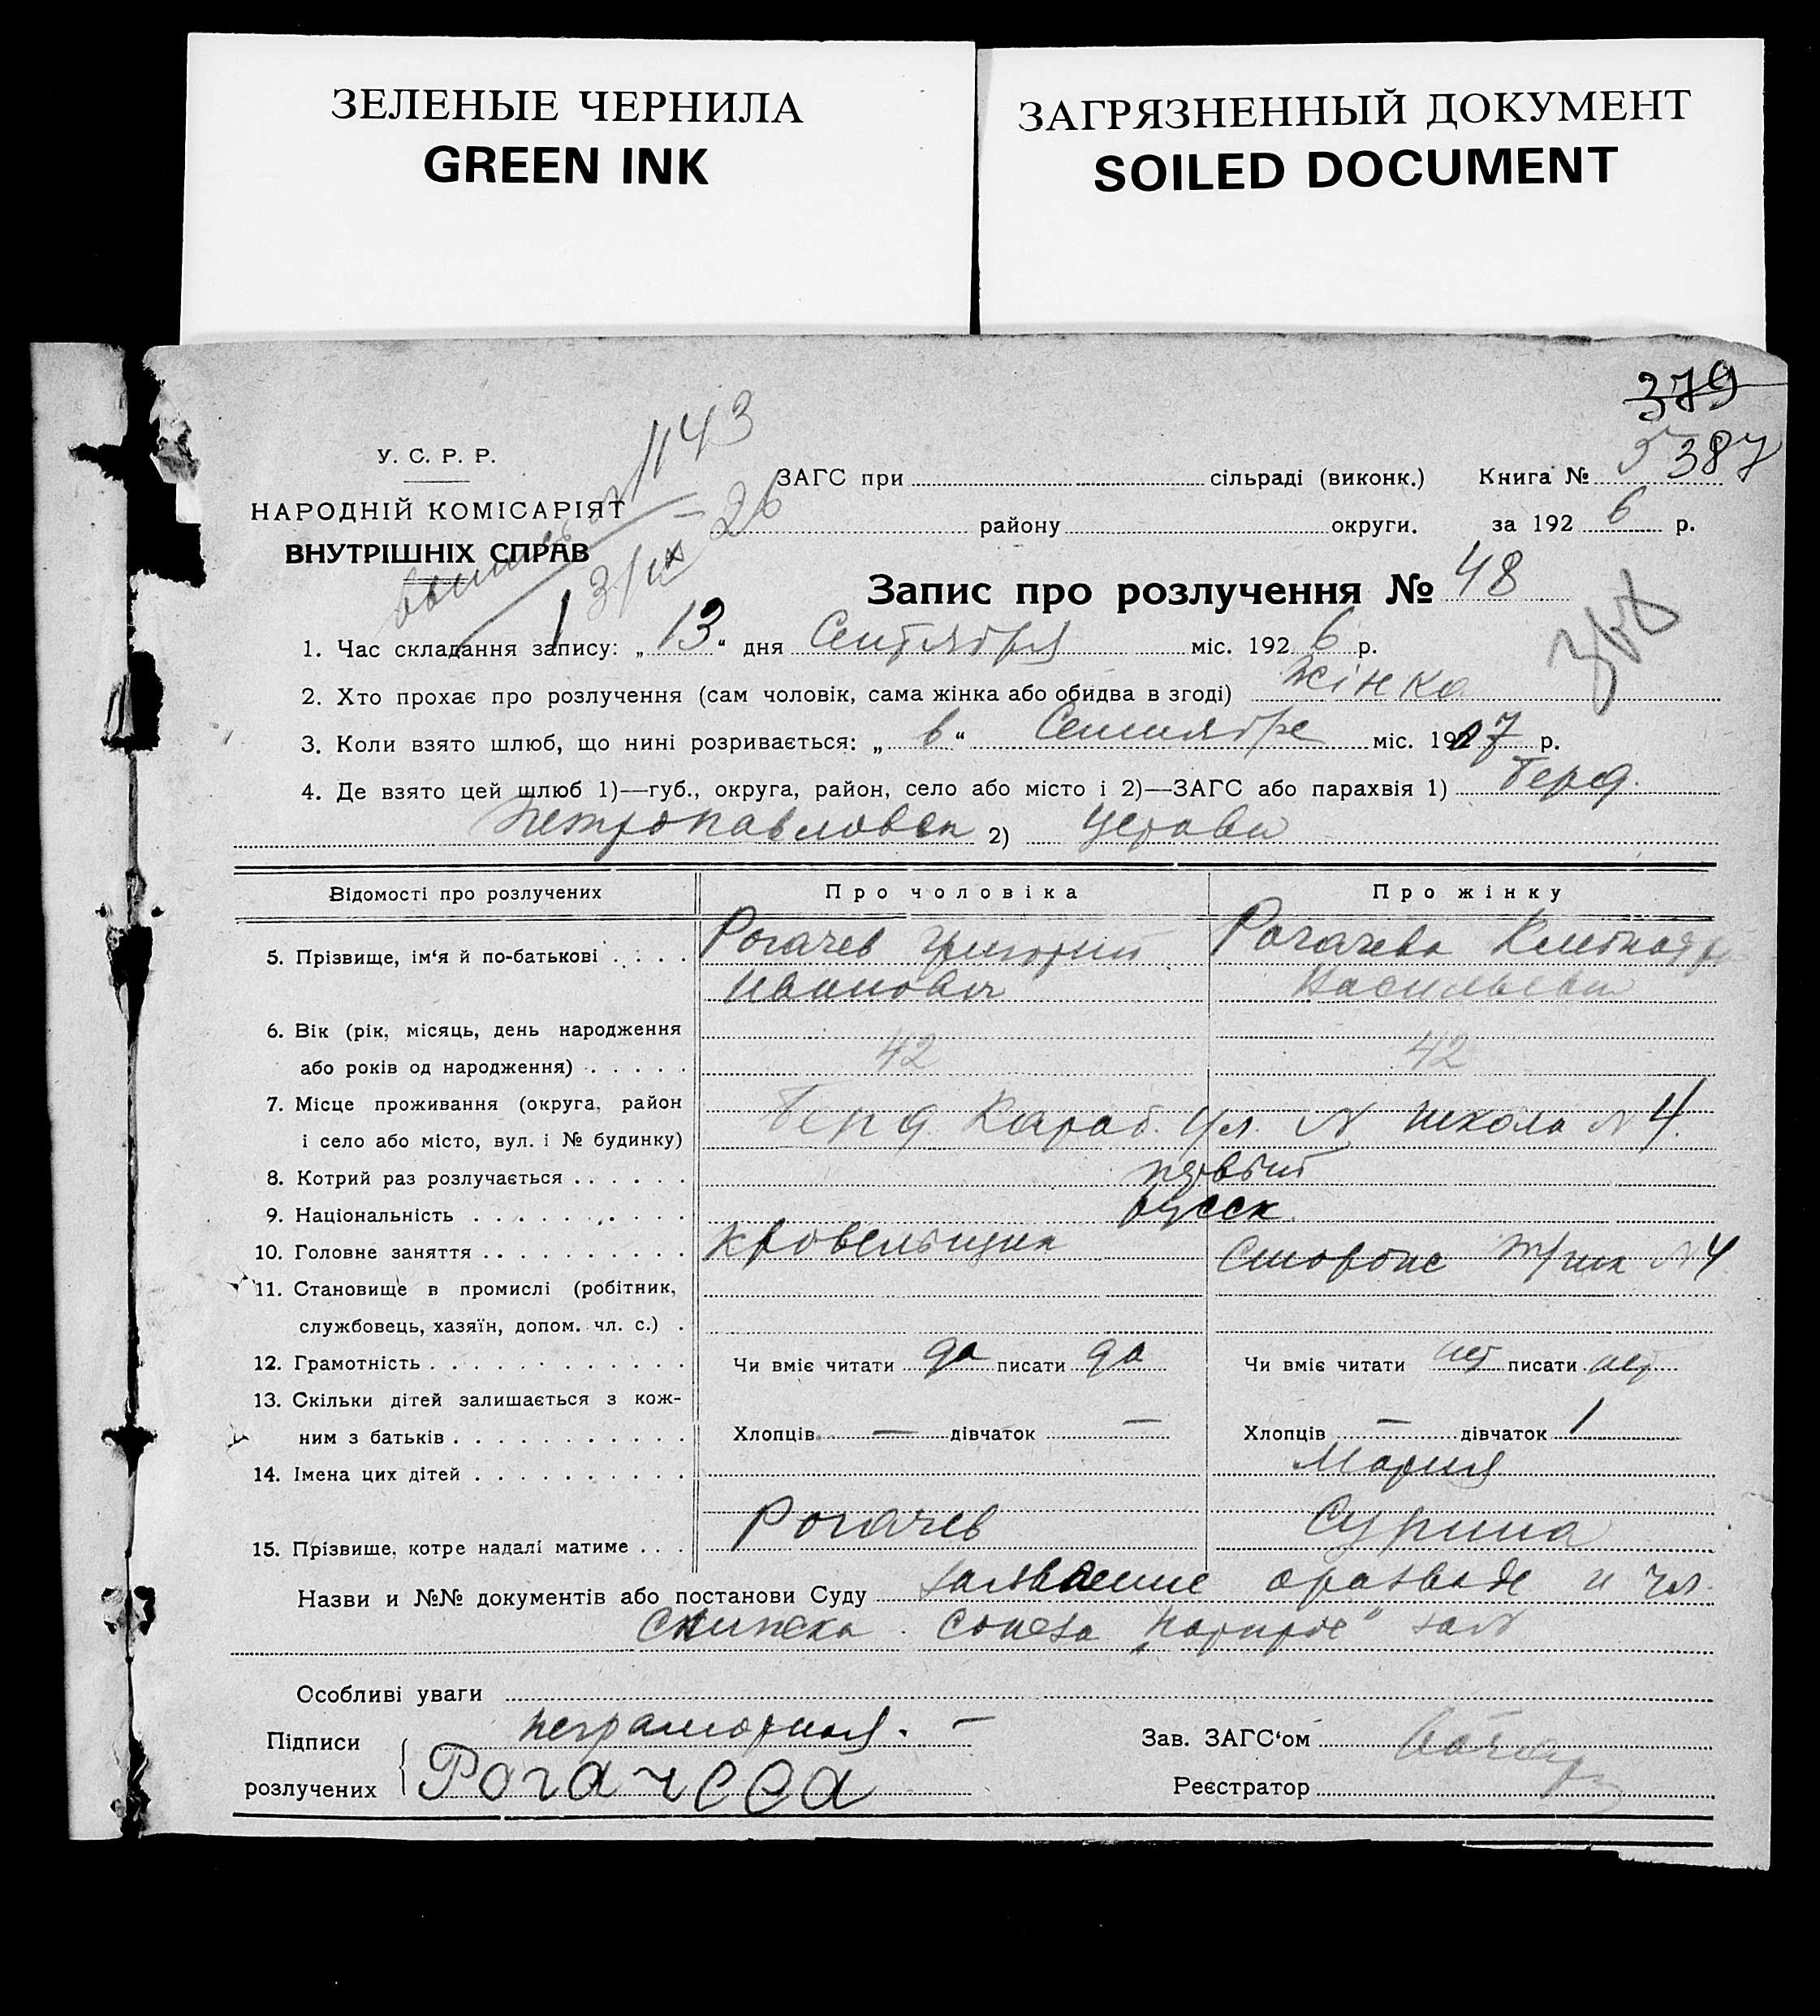 ЗЕЛЕНЫЕ ЧЕРНИЛА
GREEN INK
ЗАГРЯЗНЕННЫЙ ДОКУМЕНТ
SOILED DOCUMENT
379
У. С. Р. Р.
1143
ЗАГС при сільраді (виконк.) Книга № 5 387
НАРОДНІЙ КОМІСАРІЯТ
району округи. за 192 6 р.
ВНУТРІШНІХ СПРАВ
3/IX – 26
Запис про розлучення № 48
1. Час складання запису: „ 13 “ дня Сентября міс. 192 6 р.
2. Хто прохає про розлучення (сам чоловік, сама жінка або обидва в згоді) жінка
3. Коли взято шлюб, що нині розривається: „ в “ Сентябре міс. 1907 р.
4. Де взято цей шлюб 1)—губ., округа, район, село або місто і 2)—ЗАГС або парахвія 1) Берд.
Петропавловск 2) Церави
Відомості про розлучених Про чоловіка Про жінку
5. Прізвище, ім‘я й по-батькові . . . . Рогачев Григорий Рогачева
Иванович Васильевна
6. Вік (рік, місяць, день народження
або років од народження) . . . . . 42 42
7. Місце проживання (округа, район
і село або місто, вул. і № будинку) Берд. Караб. ул. N школа N 4.
8. Котрий раз розлучається . . . . . . первый
9. Національність . . . . . . . . . . русск.
10. Головне заняття . . . . . . . . . . Кровельщик Сторож N 4
11. Становище в промислі (робітник,
службовець, хазяїн, допом. чл. с.) .
12. Грамотність . . . . . . . . . . . . Чи вміє читати да писати да Чи вміє читати нет писати нет
13. Скільки дітей залишається з кож-
ним з батьків . . . . . . . . . . . Хлопців — дівчаток — Хлопців — дівчаток 1
14. Імена цих дітей . . . . . . . . . . Мария
15. Прізвище, котре надалі матиме . . . Рогачев Сурина
Назви и №№ документів або постанови Суду заявление о разводе и чл.
книжка Союза „Нарпрос“
Особливі уваги
Підписи неграмотная. — Зав. ЗАГС‘ом
розлучених Рогачева Реєстратор